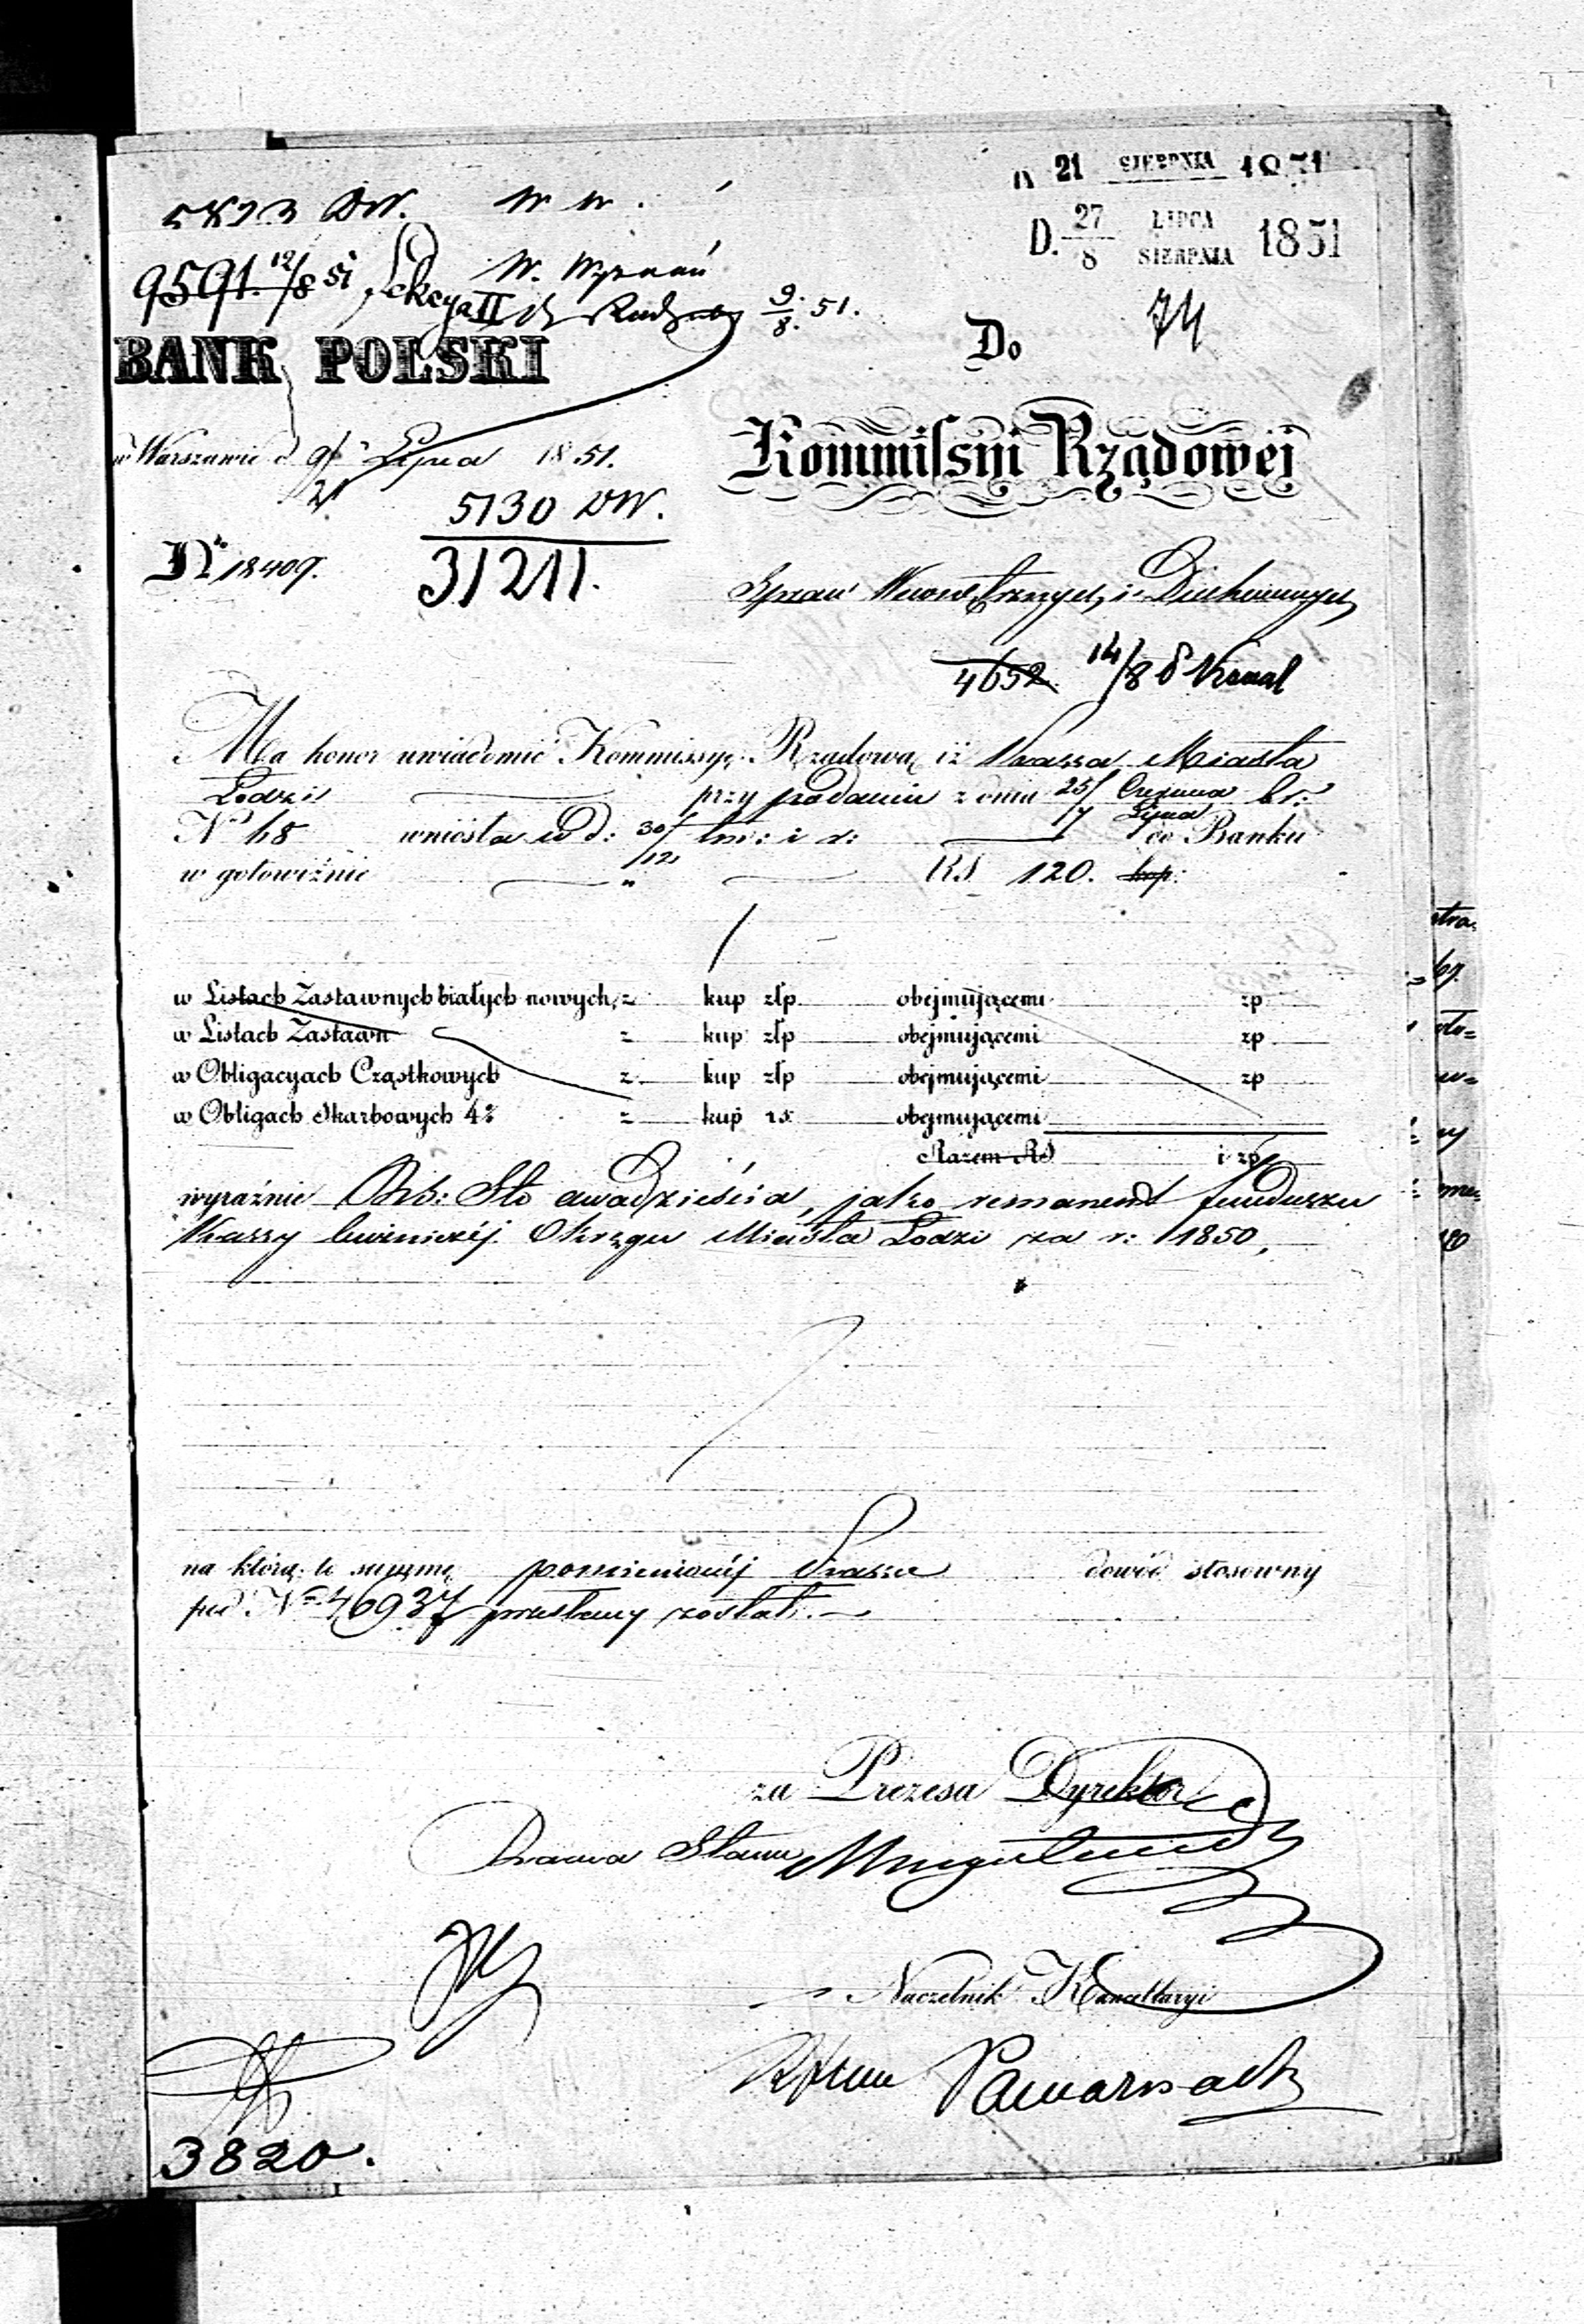 D. 21 SIERPNIA 1851
5823 DW. W W.
D. 27/8 LIPCA SIERPNIA 1851
9591. 12/8 51 Sekcya II W.
9/8. 51.
Do 74
BANK POLSKI
Kommissyi Rządowej
w Warszawie d. 9/21 Lipca 1851.
5130 DW.
No 18409. 31211.
Spraw Wewnętrznych i Duchownych
4652 14/8
Ma honor uwiadomić Kommissyę Rządową iż Kassa Miasta
Łodzi przy podaniu z dnia 25/7 Czerwca Lipca br:
No 48 wniosła w d: 30/12 tm: i d: do Banku
w gotowiźnie " RS 120. kop:
w Listach Zastawnych białych nowych, z kup złp obejmującemi zp
w Listach Zastawn z kup złp obejmującemi zp
w Obligacyach Cząstkowych z kup złp obejmującemi zp
w Obligach Skarbowych 4% z kup rs obejmującemi
Razem RS i zp
wyraźnie Rs: Sto dwadzieścia, jako remanent funduszu
Kassy Okręgu Miasta Łodzi za r: 1850,
na którą to summę pomienionéj Kassie dowód stosowny
pod No 46937 przesłany został.
za Prezesa Dyrektor
Radca Stanu
Naczelnik Kancellaryi
3820.